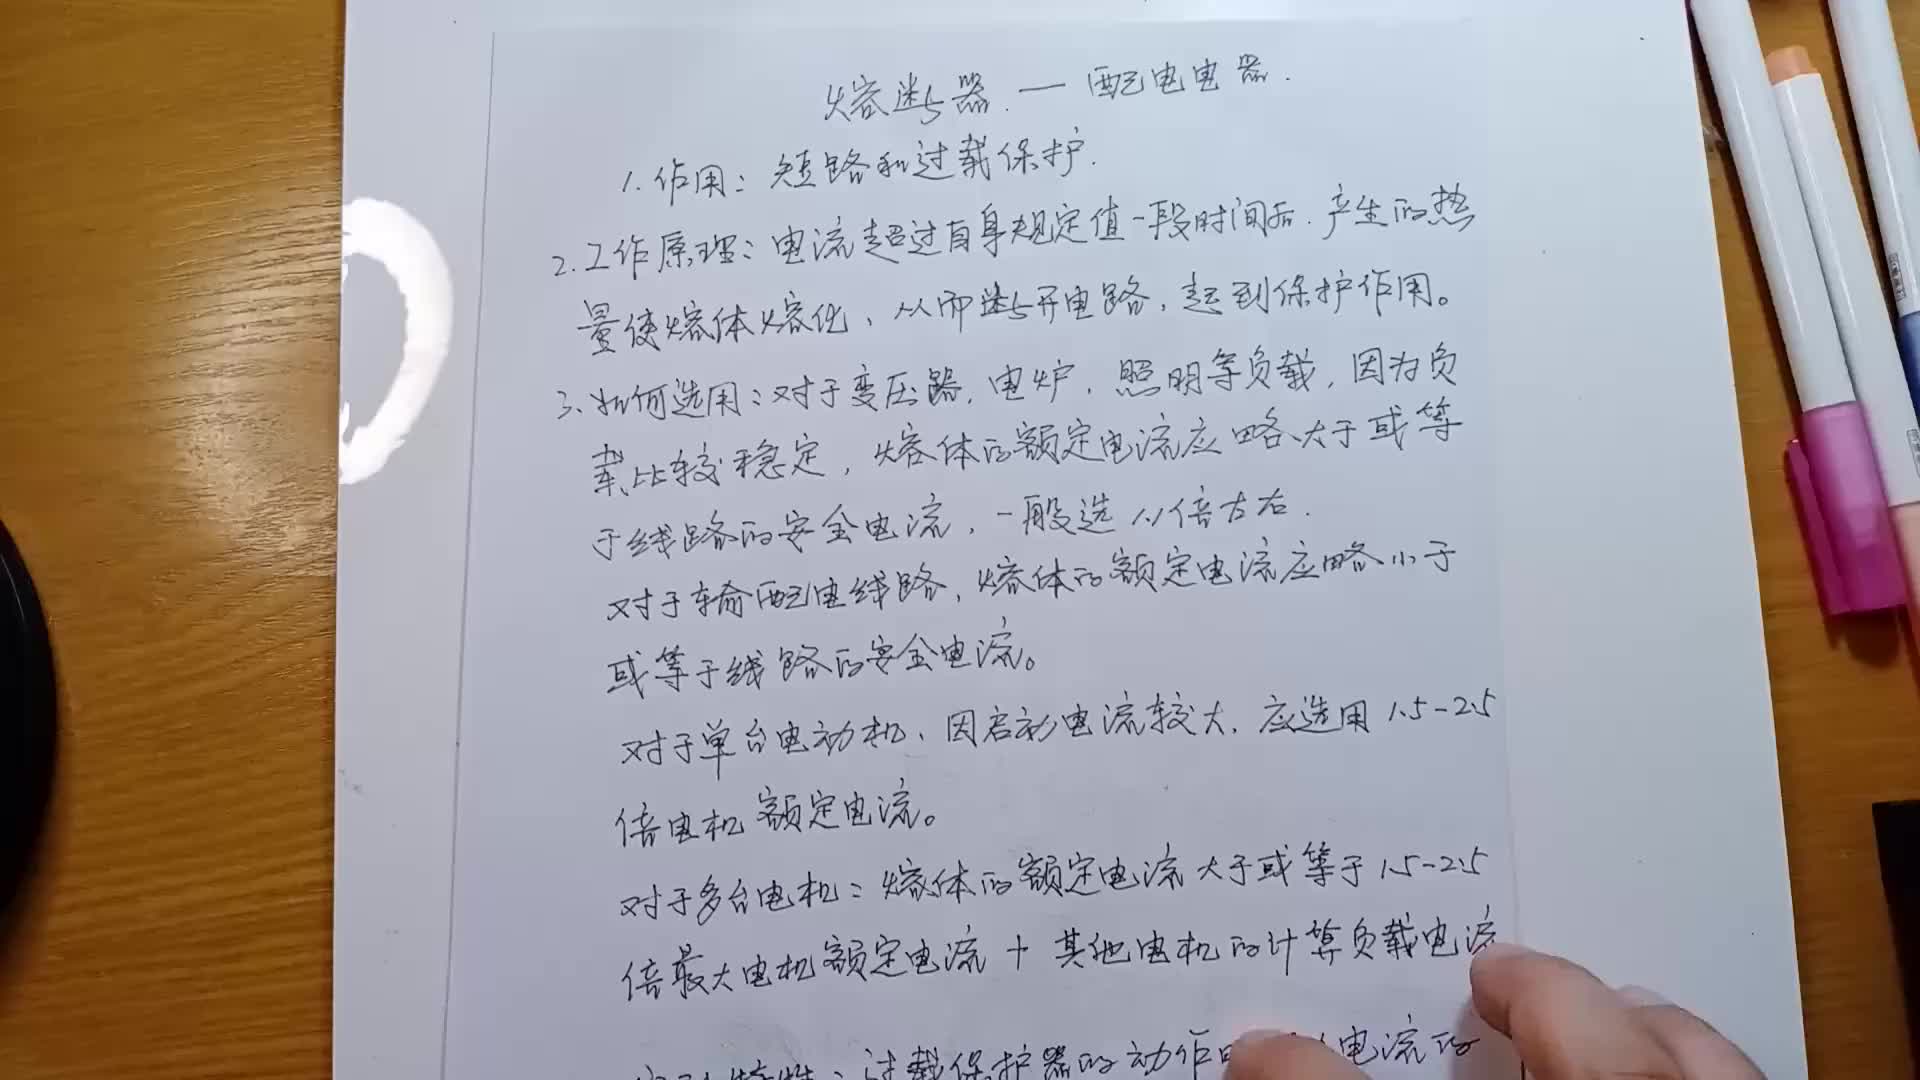 熔断器.一配电电器.
1.作用：短路和过载保护.
2.工作原理：电流超过自身规定值一段时间后.产生的热
量使熔体熔化，从而断开电路，起到保护作用。
3.如何选用：对于变压器，电炉，照明等负载，因为负
载比较稳定，熔体的额定电流应略大于或等
于线路的安全电流，一般选1.1倍左右.
对于输配电线路，熔体的额定电流应略小于
或等于线路的安全电流。
对于单台电动机、因启动电流较大，应选用1.5-2.5
倍电机额定电流。
对于多台电机：熔体的额定电流大于或等于1.5-2.5
倍最大电机额定电流+其他电机的计算负载电流
特性：过载保护器的动作 电流的